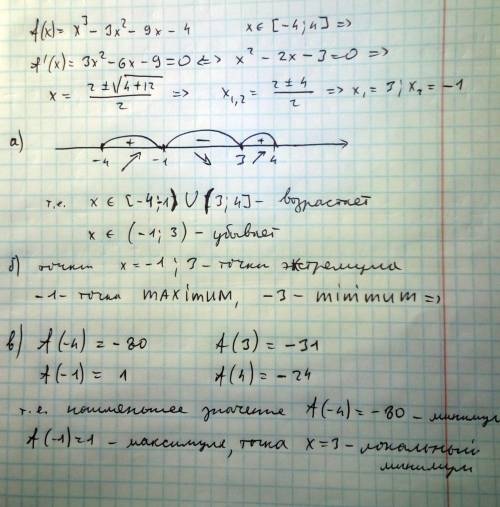 f(x) = x³ - 3x² - 9x - 4 x ∈ [-4; 4] =>
f'(x) = 3x² - 6x - 9 = 0 <=> x² - 2x - 3 = 0 =>
x = (2 ± √(4+12))/2 => x₁,₂ = (2 ± 4)/2 => x₁ = 3; x₂ = -1
а) + - +
-4 -1 3 4
т.е. x ∈ [-4;-1) ∪ (3; 4] - возрастает
x ∈ (-1; 3) - убывает
б) точки x = -1; 3 - точки экстремума
-1 - точка maximum, -3 - minimum =>
в) f(-4) = -80 f(3) = -31
f(-1) = 1 f(4) = -24
т.е. наименьшее значение f(-4) = -80 - минимум
f(-1) = 1 - максимум, точка x = 3 - локальный
минимум